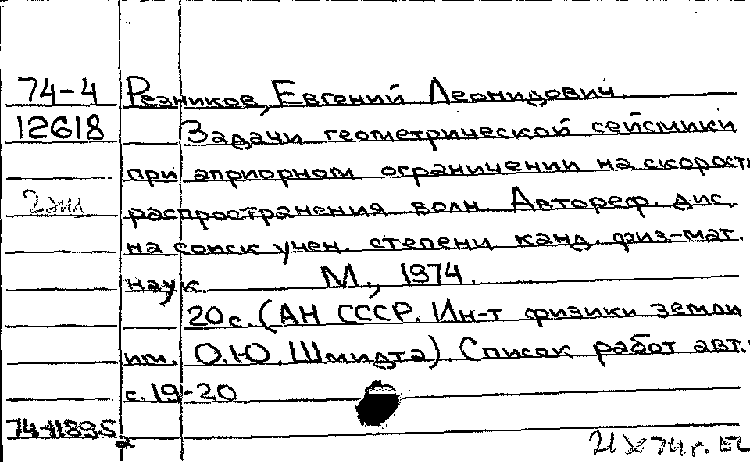 74-4 Резников, Евгений Леонидович.
12618 Задачи геометрической сейсмики
при априорном ограничении на скорости
2 экз распространения волн. Автореф. дис.
на соиск учен. степени канд. физ-мат.
наук. М., 1974.
20 с. (АН СССР. Ин-т физики земли
им. О.Ю. Шмидта). Список работ авт.:
с. 19-20